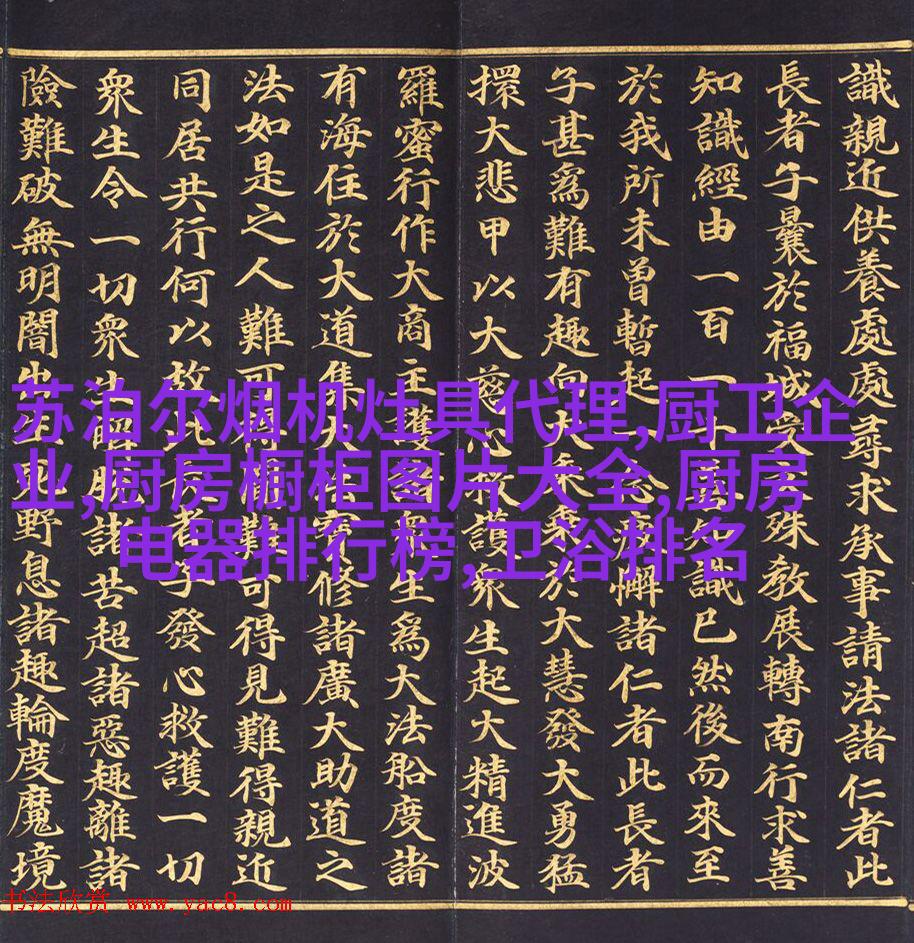 識親近供養處處尋求承事請法諸仁者此
長者子曩於福城受文殊教展轉南行求善
知識經由一百一十善知識已然後而來至
於我所未曾暫起一念疲懈諸仁者此長者
子甚爲難有趣向大乘乘於大慧發大勇猛
擐大悲甲以大慈心救護衆生起大精進波
羅蜜行作大商主護諸衆生爲大法船度諸
有海住於大道集大法寶修諸廣大助道之
法如是之人難可得聞難可得見難得親近
同居共行何以故此長者子發心救護一切
衆生令一切衆生解脫諸苦超諸惡趣離諸
險難破無明闇出生死野息諸趣輪度魔境
苏泊尔烟机灶具代理,厨卫企
业,厨房橱柜图片大全,厨房
电器排行榜,卫浴排名
书法欣赏 www.yac8.com